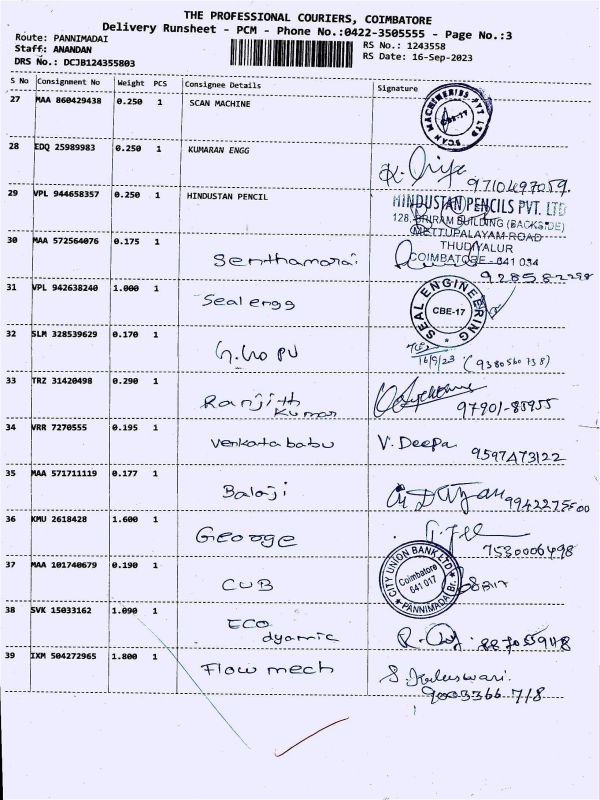 THE PROFESSIONAL COURIERS, COIMBATORE
Delivery Runsheet - PCM - Phone No.:0422-3505555 - Page No.:3
Route: PANNIMADAI
Staff: ANANDAN
RS No.: 1243558
DRS No.: DCJB124355803
RS Date: 16-Sep-2023
S No Consignment No Weight PCS Consignee Details Signature
27 MAA 860429438 0.250 1 SCAN MACHINE
SCAN MACHINERIES PVT LTD
CBE-17
28 EDQ 25989983 0.250 1 KUMARAN ENGG
9710497059.
29 VPL 944658357 0.250 1 HINDUSTAN PENCIL
HINDUSTAN PENCILS PVT. LTD
128, SRIRAM BUILDING (BACKSIDE)
METTUPALAYAM ROAD
THUDIYALUR
COIMBATORE - 641 034
30 MAA 572564076 0.175 1 Senthamarai
31 VPL 942638240 1.000 1 Seal engg
SEAL ENGINEERING
CBE-17
32 SLM 328539629 0.170 1
16/9/23 (9380560738)
33 TRZ 31420498 0.290 1 Ranjith
Kumar
97901-83955
34 VRR 7270555 0.195 1 Venkatababu V. Deepa
9597473122
35 MAA 571711119 0.177 1 Balaji
9942275500
36 KMU 2618428 1.600 1 George
7530006498
37 MAA 101740679 0.190 1 CUB
CITY UNION BANK LTD
Coimbatore
641 017
PANNIMADAI Br.
38 SVK 15033162 1.090 1 ECO
dyamic
39 IXM 504272965 1.800 1 Flow mech S. Kaleswari.
9003366718